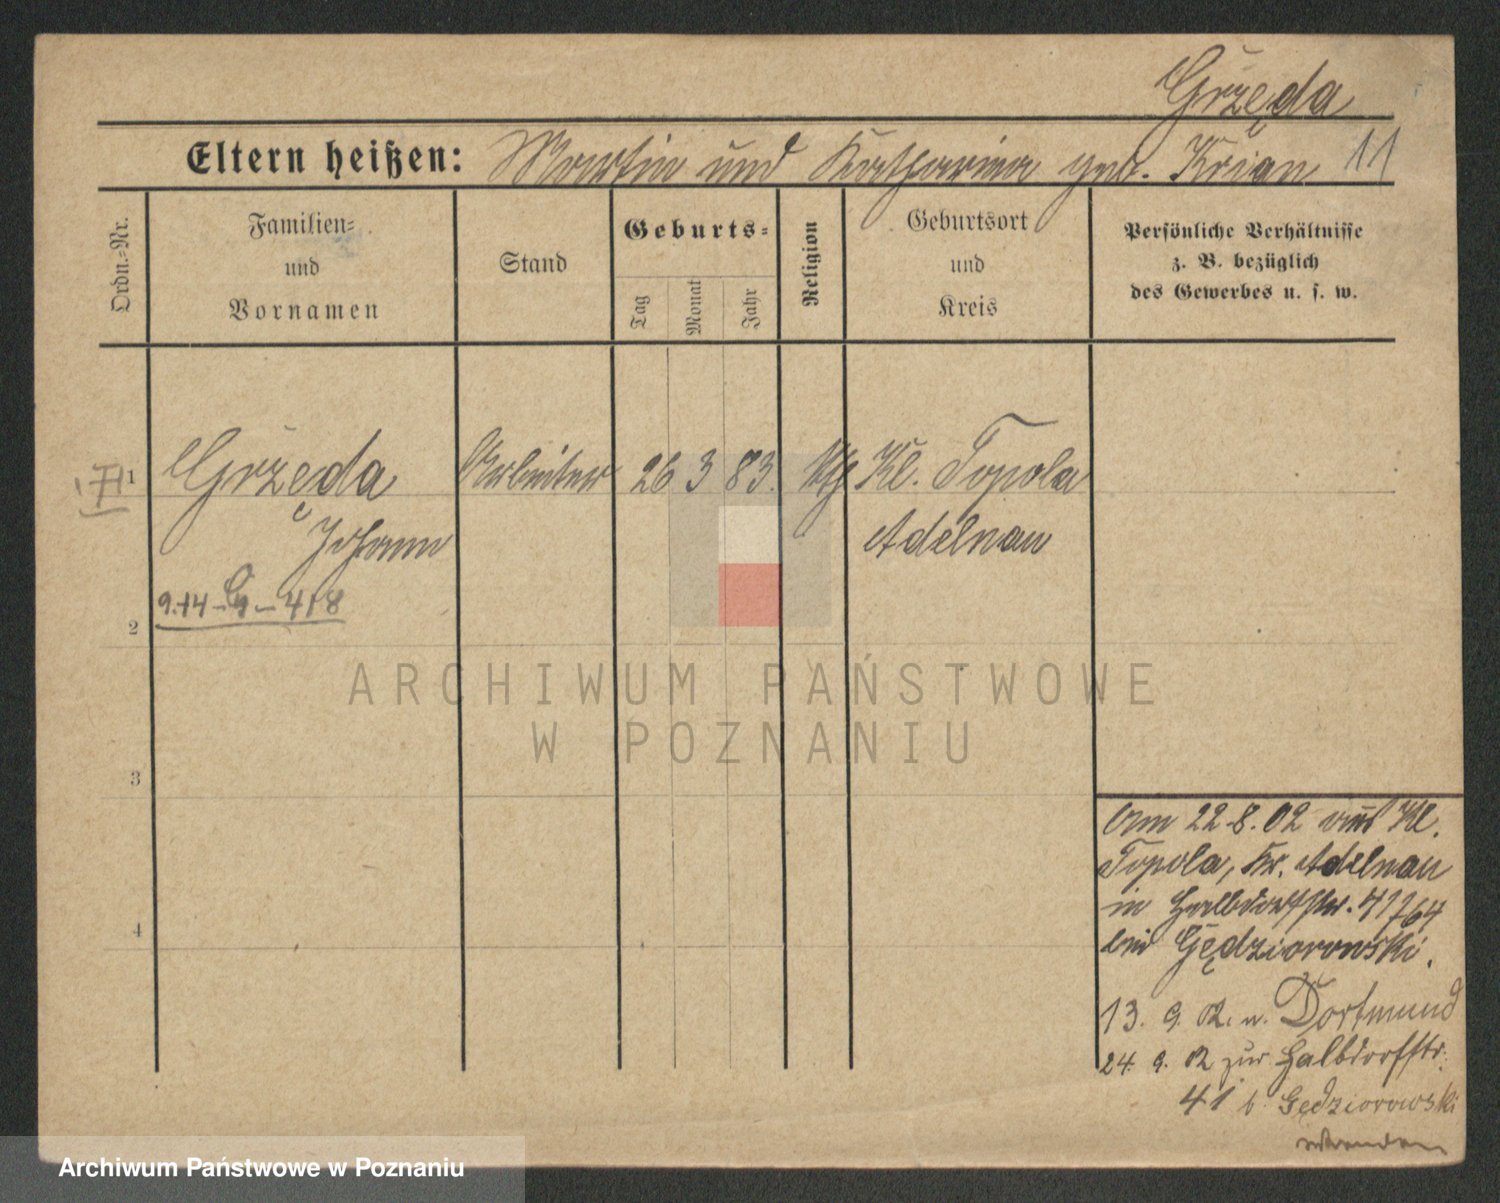 Grzęda
Eltern heißen: Martin und Katharina geb. Krian 11
Ordn.-Nr.
Familien-
und
Vornamen
Stand
Geburts-
Tag
Monat
Jahr
Religion
Geburtsort
und
Kreis
Persönliche Verhältnisse
z. B. bezüglich
des Gewerbes u. s. w.
1 Grzęda Arbeiter 26 3 83. kth Kl. Topola
Johann Adelnau
9.14-G-418
2
3
4
Am 22.8.02 aus Kl.
Topola, Kr. Adelnau
in Halbdorfstr. 41
bei Gędziorowski.
13. 9. 02. n. Dortmund
24. 9. 02 zur Halbdorfstr.
41 b. Gędziorowski
ARCHIWUM PAŃSTWOWE
W POZNANIU
Archiwum Państwowe w Poznaniu